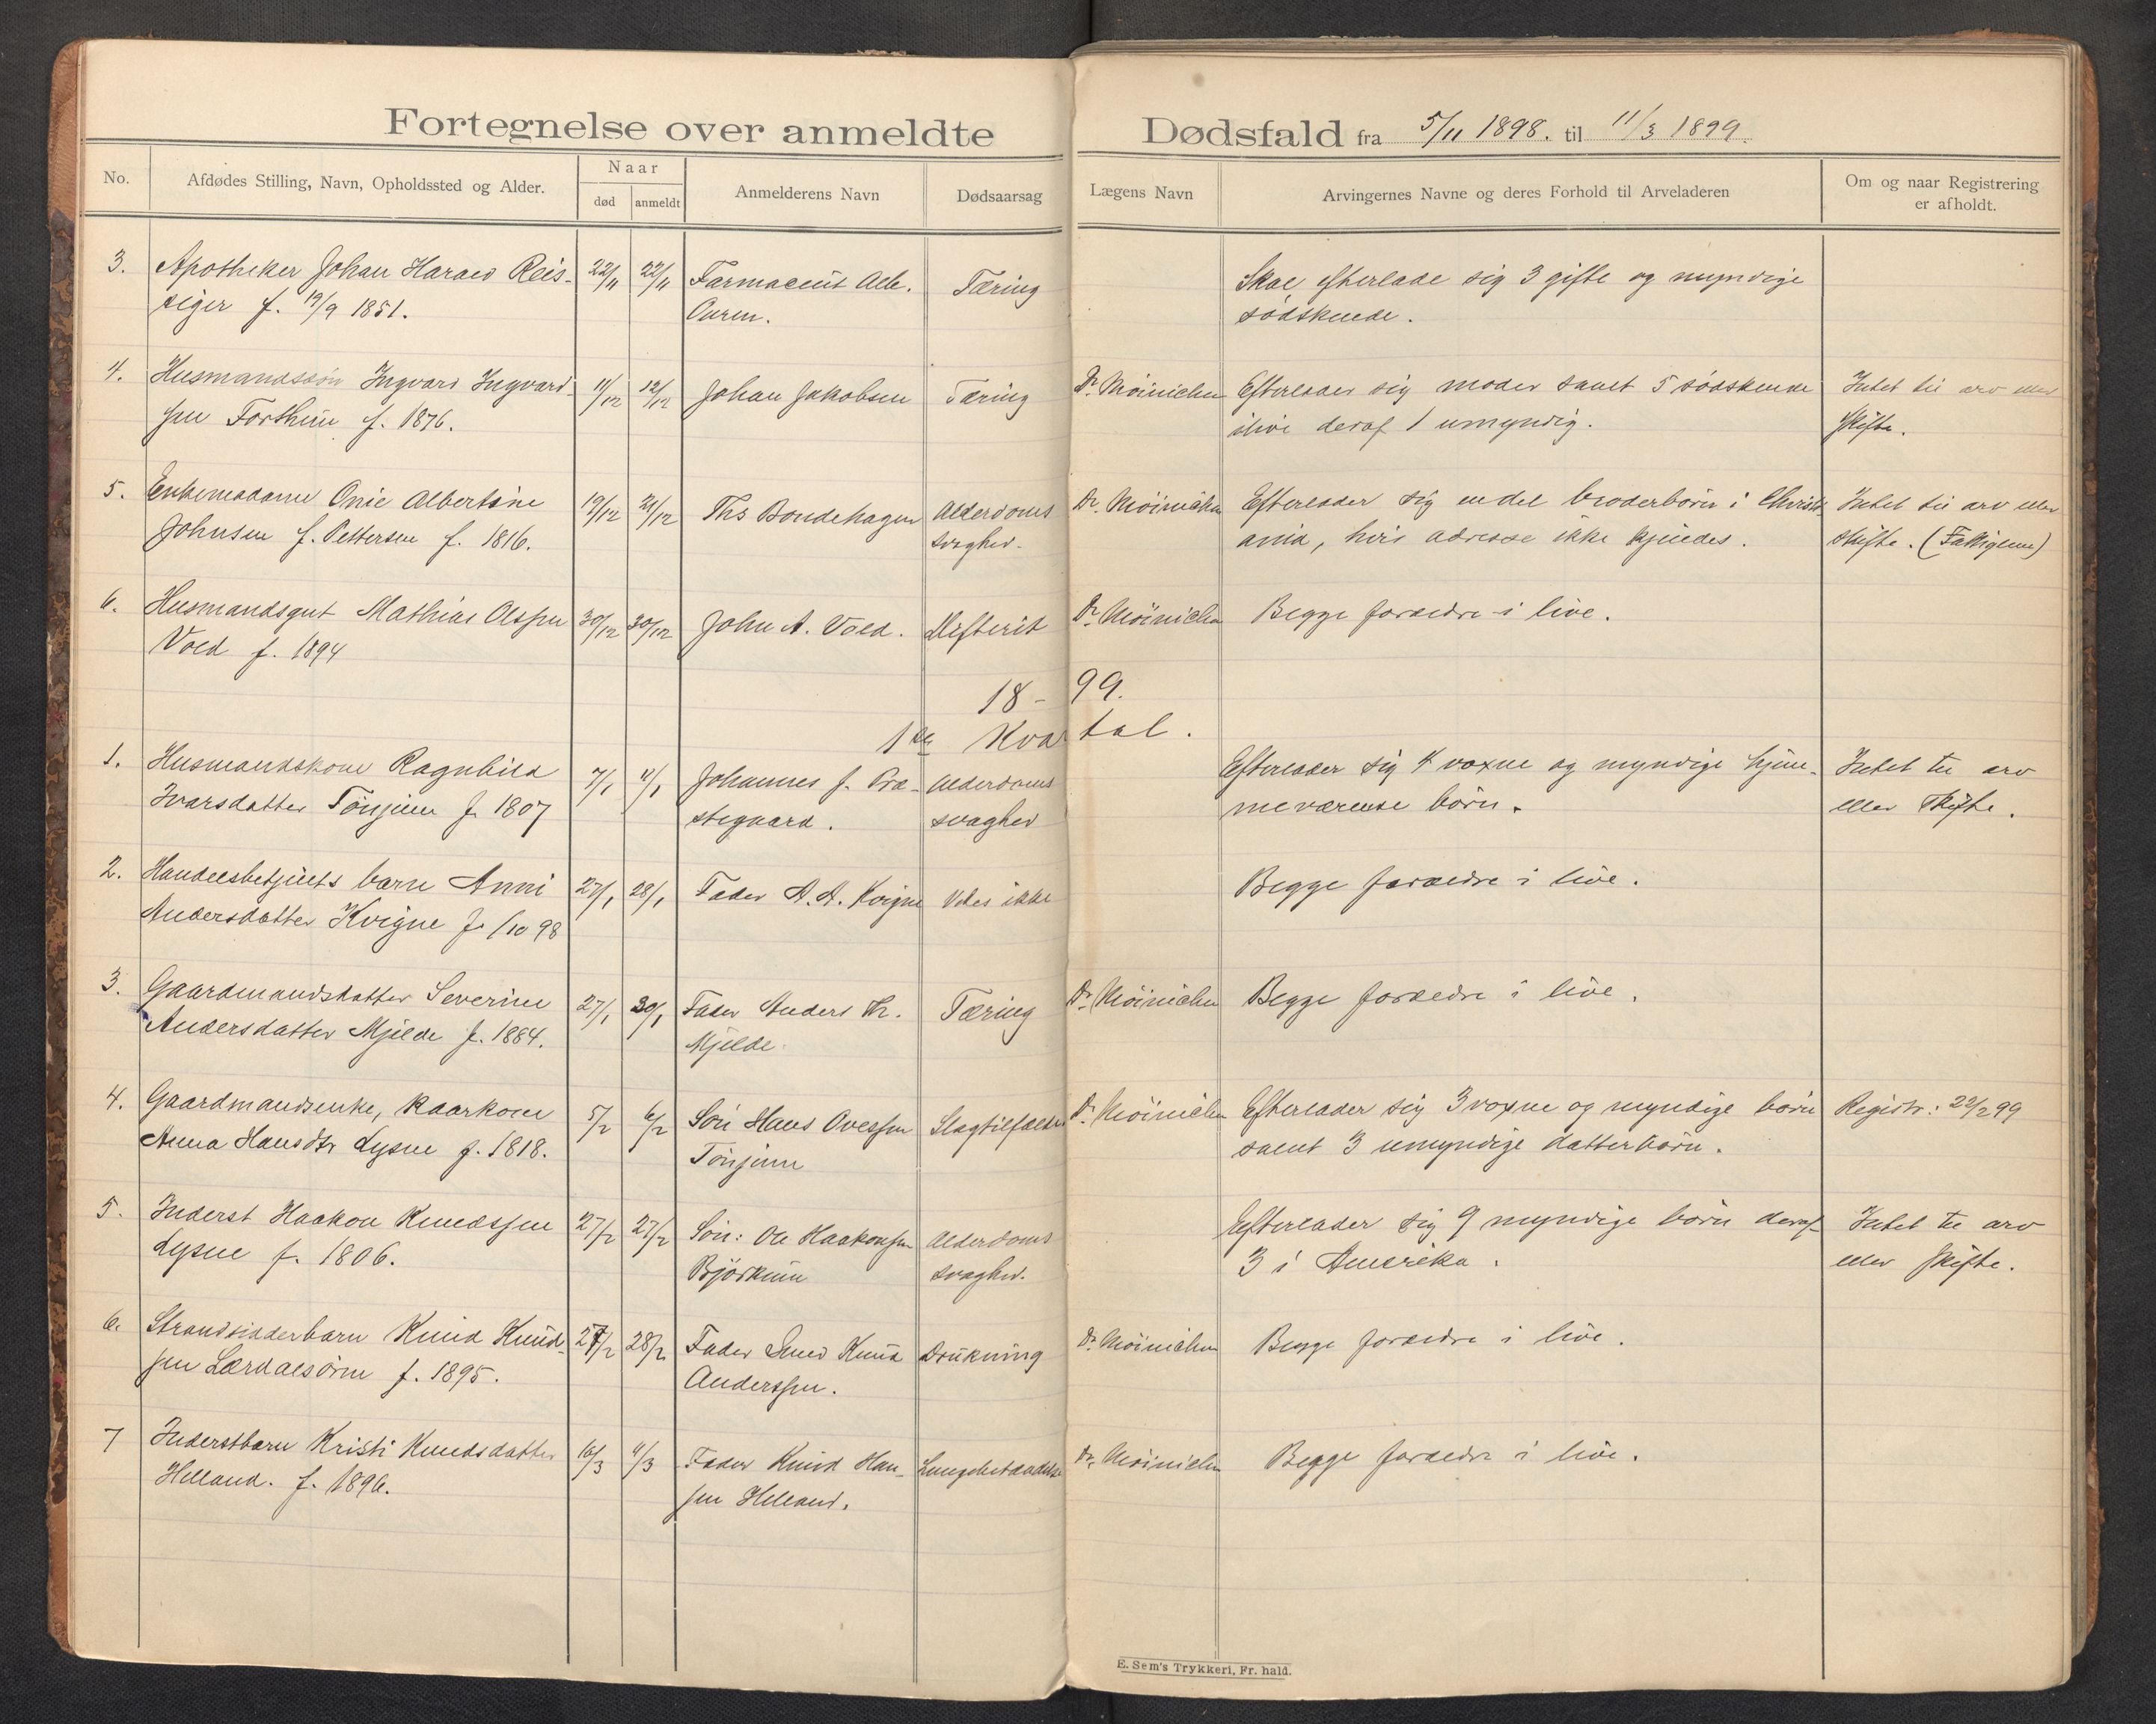 Fortegnelse over anmeldte Dødsfald fra 5/11 1898. til 11/3 1899.
No.
Afdødes Stilling, Navn, Opholdssted og Alder.
Naar
død
anmeldt
Anmelderens Navn
Dødsaarsag
Lægens Navn
Arvingernes Navne og deres Forhold til Arveladeren
Om og naar Registrering
er afholdt.
3. Apotheker Johan Harald Reis- 22/11 22/11 Farmaceut Alb. Tæring Skal efterlade sig 3 gifte og myndige
siger f. 19/9 1851. Ouren. södskende.
4. Husmandssön Ingvard Ingvard- 11/12 12/12 Johan Jakobsen Tæring Dr. Möinichen Efterlader sig moder samt 5 södskende Intet til arv eller
sen Forthun f. 1876. ilive deraf 1 umyndig. skifte.
5. Enkemadame Onie Albertine 19/12 21/12 Ths Bondehagen Alderdoms Dr. Möinichen Efterlader sig endel broderbörn i Christi- Intet til arv eller
Johnsen f. Pettersen f. 1816. svaghed. ania, hvis adresse ikke kjendes. skifte. (Fattiglem)
6. Husmandsgut Mathias Olssen 30/12 30/12 John A. Vold. Difterit Dr. Möinichen Begge foreldre i live.
Vold f. 1894
18-99.
1ste Kvartal.
1. Husmandskone Ragnhild 7/1 11/1 Johannes J. Præ- Alderdoms Efterlader sig 4 voxne og myndige hjem-
Ivarsdatter Tönjum f. 1807 stegaard. svaghed meværende börn. Intet til arv
eller skifte.
2. Handelsbetjents barn Anni 27/1 28/1 Fader A. A. Kvigne Vides ikke Begge forældre i live.
Andersdatter Kvigne f. /10 98
3. Gaardmandsdatter Severine 27/1 30/1 Fader Anders Tædr. Tæring Dr. Möinichen Begge foreldre i live.
Andersdatter Mjelde f. 1884. Mjelde
4. Gaardmandsenke, kaarkone 5/2 6/2 Sön Hans Olessen Slagtilfælde Dr. Möinichen Efterlader sig 3 voxne og myndige börn Registr.: 22/2 99
Anna Hansdtr Lysne f. 1818. Tönjum samt 3 umyndige datterbörn.
5. Inderst Haakon Knudssen 27/2 27/2 Sön: Ole Haakonsen Alderdoms Efterlader sig 9 myndige börn deraf Intet til arv
Lysne f. 1806. Björkum svaghed. 3 i Amerika. eller skifte.
6. Strandsidderbarn Knud Knud- 27/2 28/2 Fader Smed Knud Drukning Dr. Möinichen Begge foreldre i live.
sen Lærdalsören f. 1895. Anderssen.
7 Inderstbarn Kristi Knudsdatter 10/3 11/3 Fader Knud Han- Lungebetændelse Dr. Möinichen Begge foreldre i live.
Helland. f. 1896. sen Helland.
E. Sem's Trykkeri, Fr. hald.